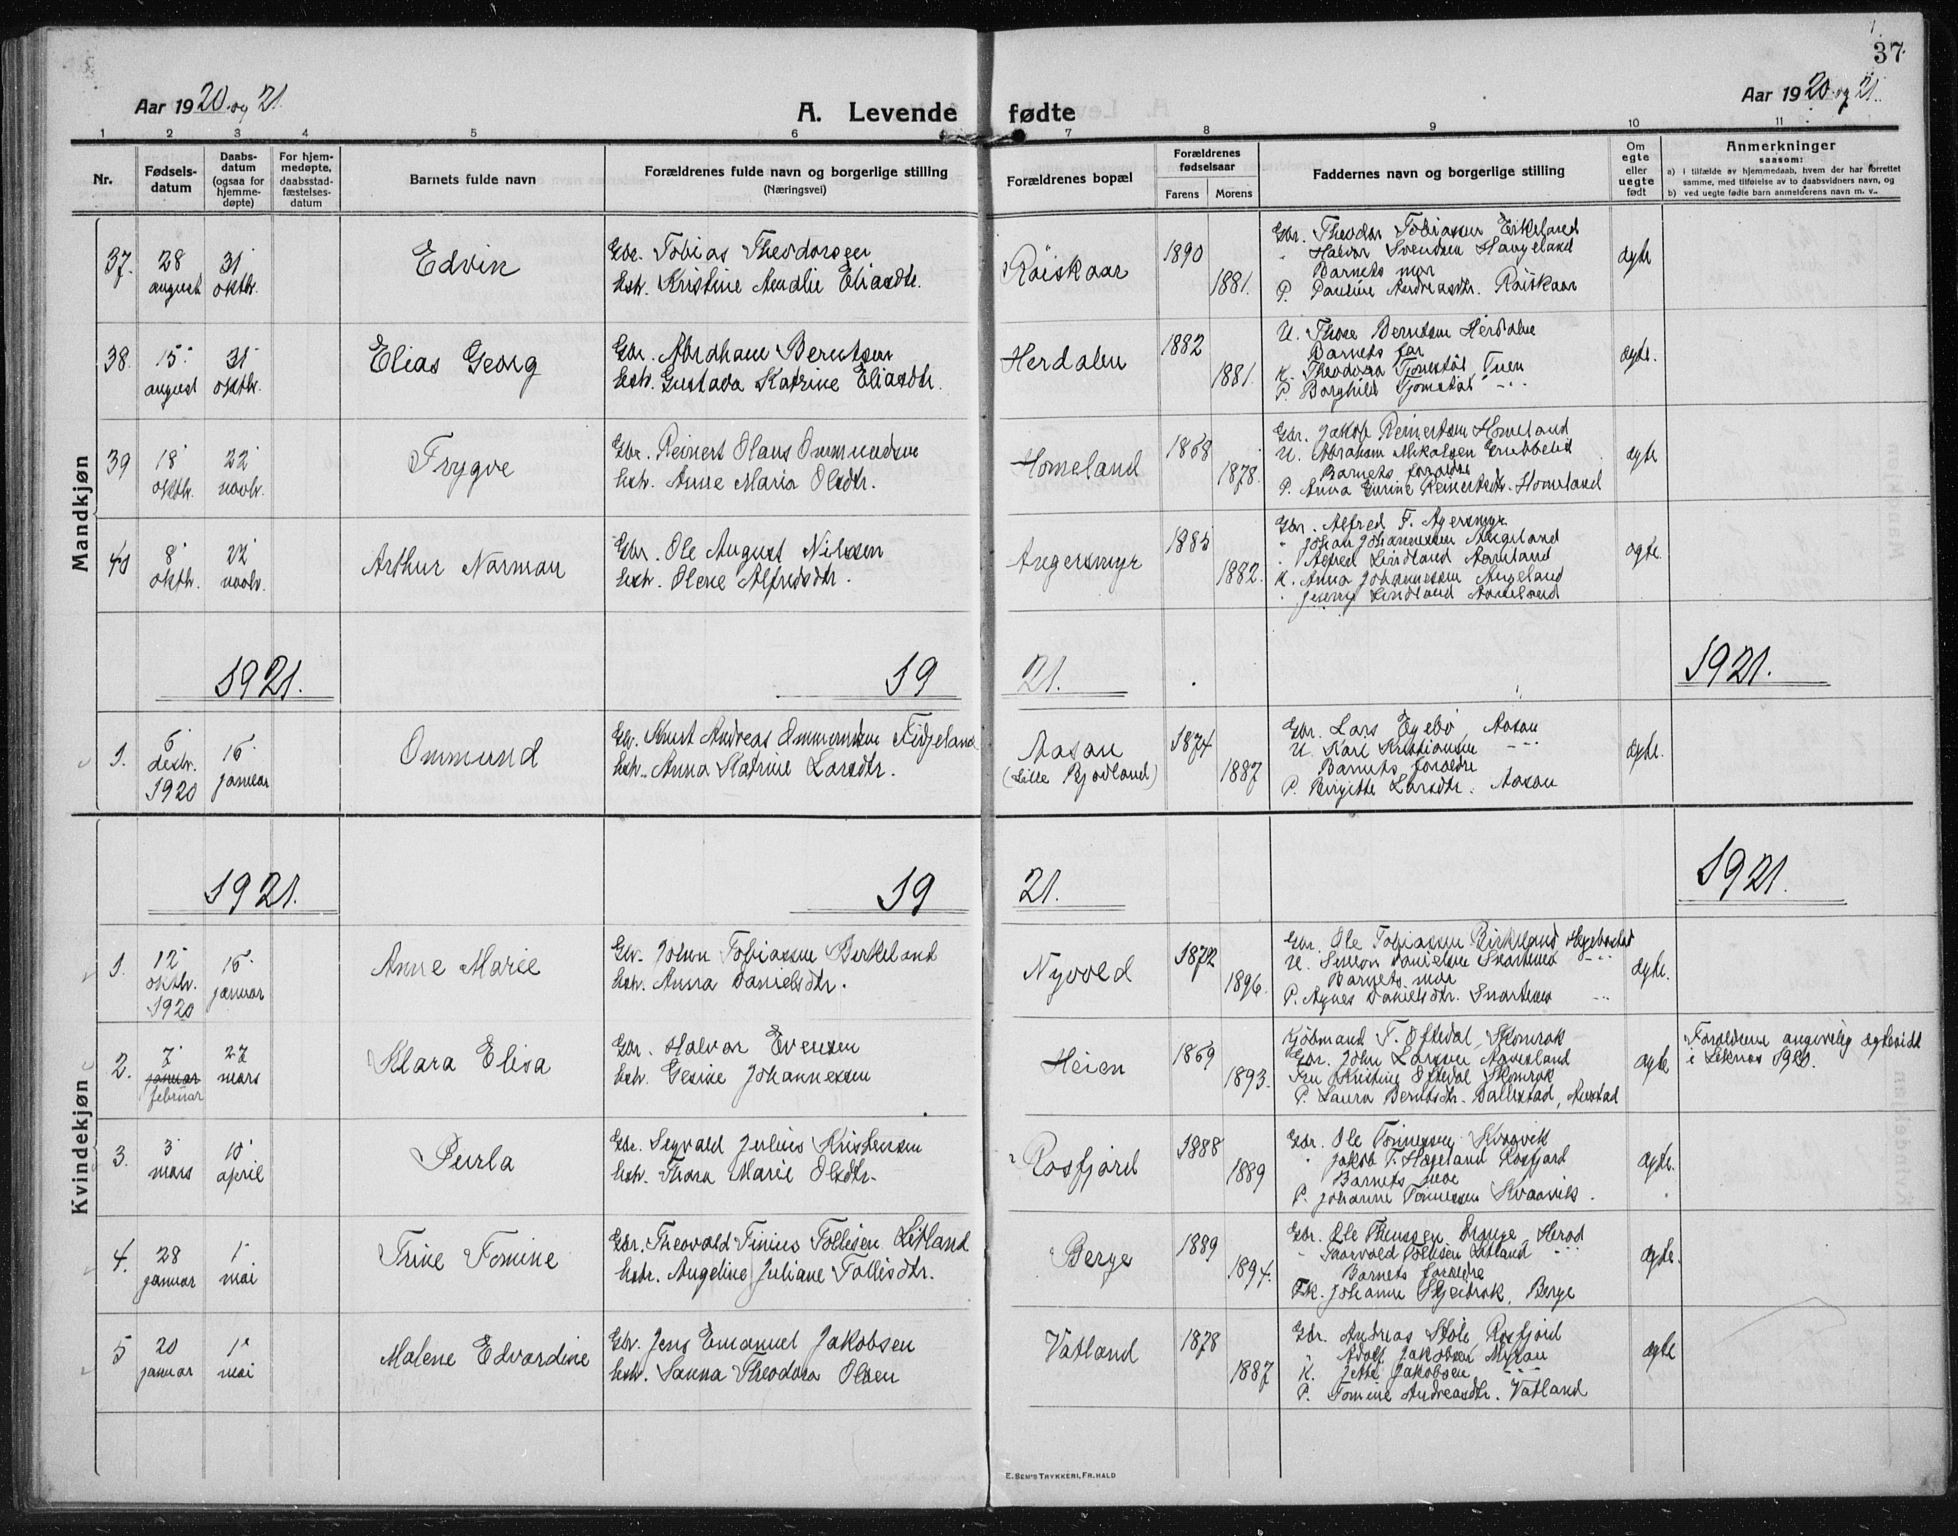 37
Aar 1920 og 21.
A. Levende fødte
Aar 1920 og 21.
1 2 3 4 5 6 7 8 9 10 11
Nr.
Fødsels-datum
Daabs-datum (ogsaa for hjemme-døpte)
For hjem-medøpte, daabsstad-fæstelses-datum
Barnets fulde navn
Forældrenes fulde navn og borgerlige stilling
(Næringsvei)
Forældrenes bopæl
Forældrenes fødselsaar
Farens Morens
Faddernes navn og borgerlige stilling
Om egte eller uegte født
Anmerkninger
saasom:
a) i tilfælde av hjemmedaab, hvem der har forrettet
samme, med tilføielse av to daabsvidners navn, og
b) ved uegte fødte barn anmelderens navn m. v.
Mandkjøn
37. 28 august 31 oktbr. Edvin
Gbr. Tobias Theodorsen
Hstr. Kristine Amalie Eliasdtr.
Røiskaar 1890 1881.
Gbr. Theodor Tobiassen Eikeland
" Halvor Svendsen Haugeland
Barnets mor
P. Pauline Andreasdtr. Røiskaar
ægte
38. 15 august 31 oktbr. Elias Georg
Gbr. Abraham Berntsen
Hstr. Gustava Katrine Eliasdtr.
Herdalen 1882 1881.
U. Thore Berntsen Herdalen
Barnets far
K. Theodora Tjomstøl, Tuen
P. Borghild Tjomstøl - " -
ægte.
39 18 oktbr. 22 novbr. Trygve
Gbr. Reinert Olaus Ommundsen
Hstr. Anne Maria Olsdtr.
Homeland 1868 1878.
Gbr. Jakob Reinertsen Homeland
U. Abraham Mikalsen Grubbelid
Barnets forældre
P. Anna Gurine Reinertsdtr. Homeland
ægte
40 8 oktbr. 22 novbr. Arthur Norman
Gbr. Ole August Nilssen
Hstr. Olene Alfredsdtr.
Angersmyr 1885 1882.
Gbr. Alfred F. Agersmyr
" Johan Johannessen Augeland
" Alfred Lindland Aameland
K. Anna Johannessen Augeland
" Jenny Lindland Aameland
ægte.
1921. 19 21. 1921.
1. 6 desbr. 1920 16 januar Ommund
Gbr. Knut Andreas Ommundsen Fidjeland
Hstr. Anna Katrine Larsdtr.
Aasan
(Lille Kjødland)
1874 1887
Gbr. Lars Egebø, Aasan
U. Karl Kristiansen - " -
Barnets forældre
P. Birgitte Larsdtr. Aasan
ægte.
Kvindekjøn
1921. 19 21. 1921.
1. 12 oktbr. 1920 16 januar Anne Marie
Gbr. Johan Tobiassen Birkeland
Hstr. Anna Danielsdtr.
Nyvold 1872 1896.
Gbr. Ole Tobiassen Birkeland Hægebostad
U. Simon Danielsen Snartemo - " -
Barnets mor
P. Agnes Danielsdtr. Snartemo - " -
ægte.
2. 7 januar februar 27 mars Klara Elisa
Gbr. Halvor Evensen
Hstr. Gesine Johannessen
Heien 1869 1893.
Kjøbmand T. Oftedal, Skomrak
Gbr. John Larsen Aavesland
Fru Kristine Oftedal Skomrak
P. Laura Berntsdtr. Ballestad, Austad
ægte
Forældrene angivelig ægteviet
i Leknes 1920.
3. 3 mars 10 april Perla
Gbr. Sigvald Julius Kristensen
Hstr. Thora Marie Olsdtr.
Rosfjord 1888 1889
Gbr. Ole Tønnessen, Kvaavik
" Jakob T. Hageland Rosfjord
Barnets mor
P. Johanne Tønnessen Kvaavik.
ægte.
4. 28 januar 1 mai Trine Tomine
Gbr. Theovald Tinius Tollisen Litland
Hstr. Angeline Juliane Tollisdtr.
Berge 1889 1894.
Gbr. Ole Theussen Drange, Herad
" Taarvald Tollisen Litland - " -
Barnets forældre
Frk. Johanne Skjeibrok, Berge
ægte.
5 20 januar 1 mai Malene Edvardine
Gbr. Jens Emanuel Jakobsen
Hstr. Sanna Theodora Olsen
Vatland 1878 1887
Gbr. Andreas Støle, Rosfjord
" Adolf Jakobsen Myran
K. Jette Jakobsen - " -
P. Tomine Andreasdtr. Vatland
ægte
E. Sem's Trykkeri, Fr.hald